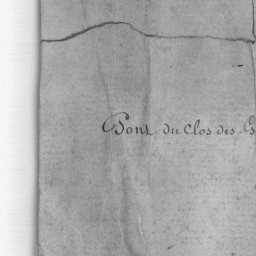 Pont du Clos des